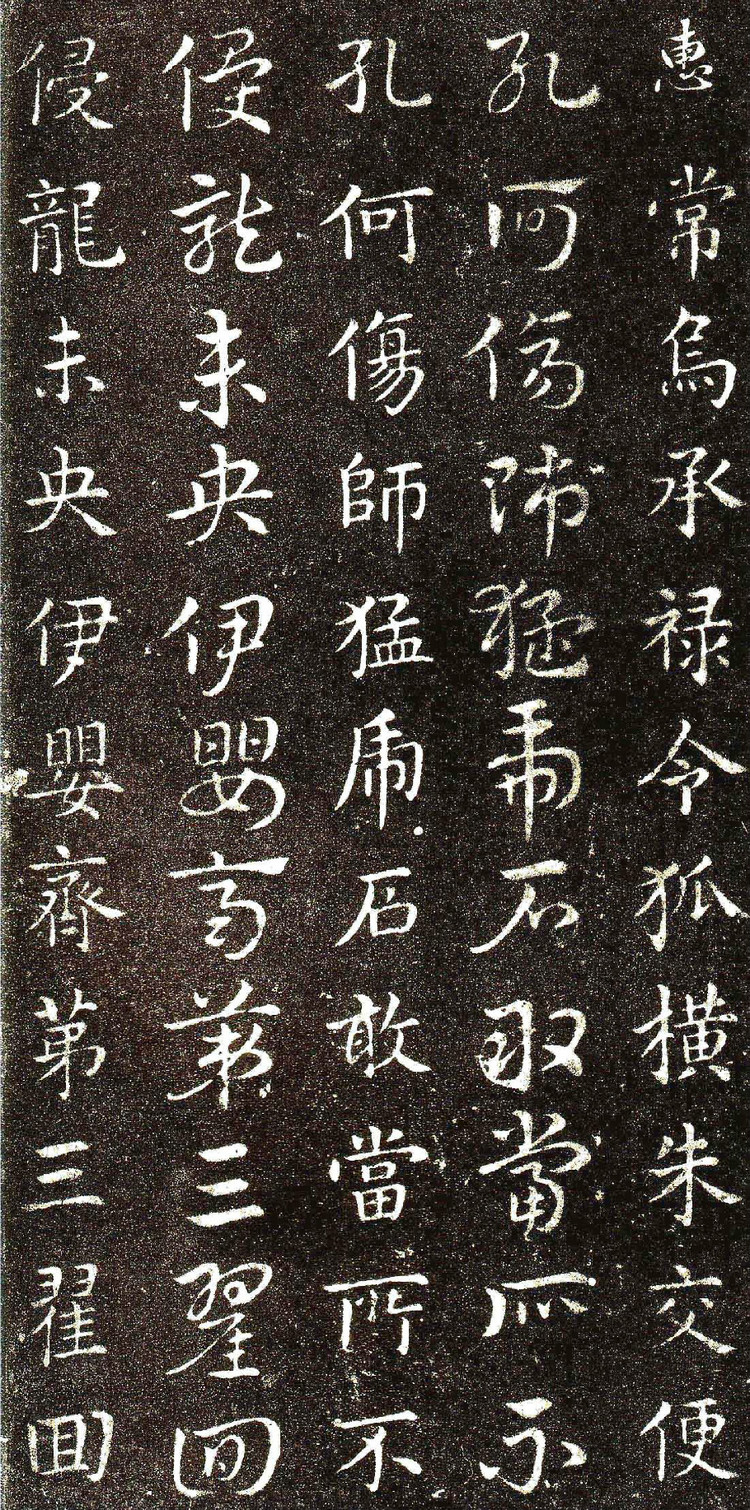 惠常烏承禄令狐横朱交便
孔何傷師猛虎石敢當所不
孔何傷師猛虎石敢當所不
侵龍未央伊嬰齊苐三翟回
侵龍未央伊嬰齊苐三翟囬